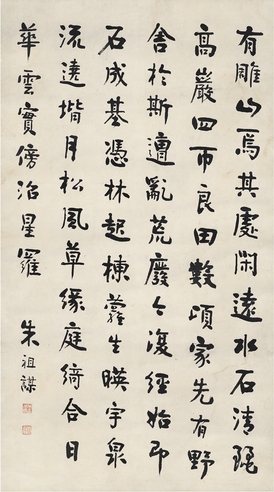 有雕山焉其處閑遠水石清麗
高巖四帀良田數頃家先有野
舍於斯遭亂荒廢今復經始即
石成基憑林起棟蘿生暎宇泉
流遶堦月松風草緣庭綺合日
華雲實傍沼星羅
朱祖謀